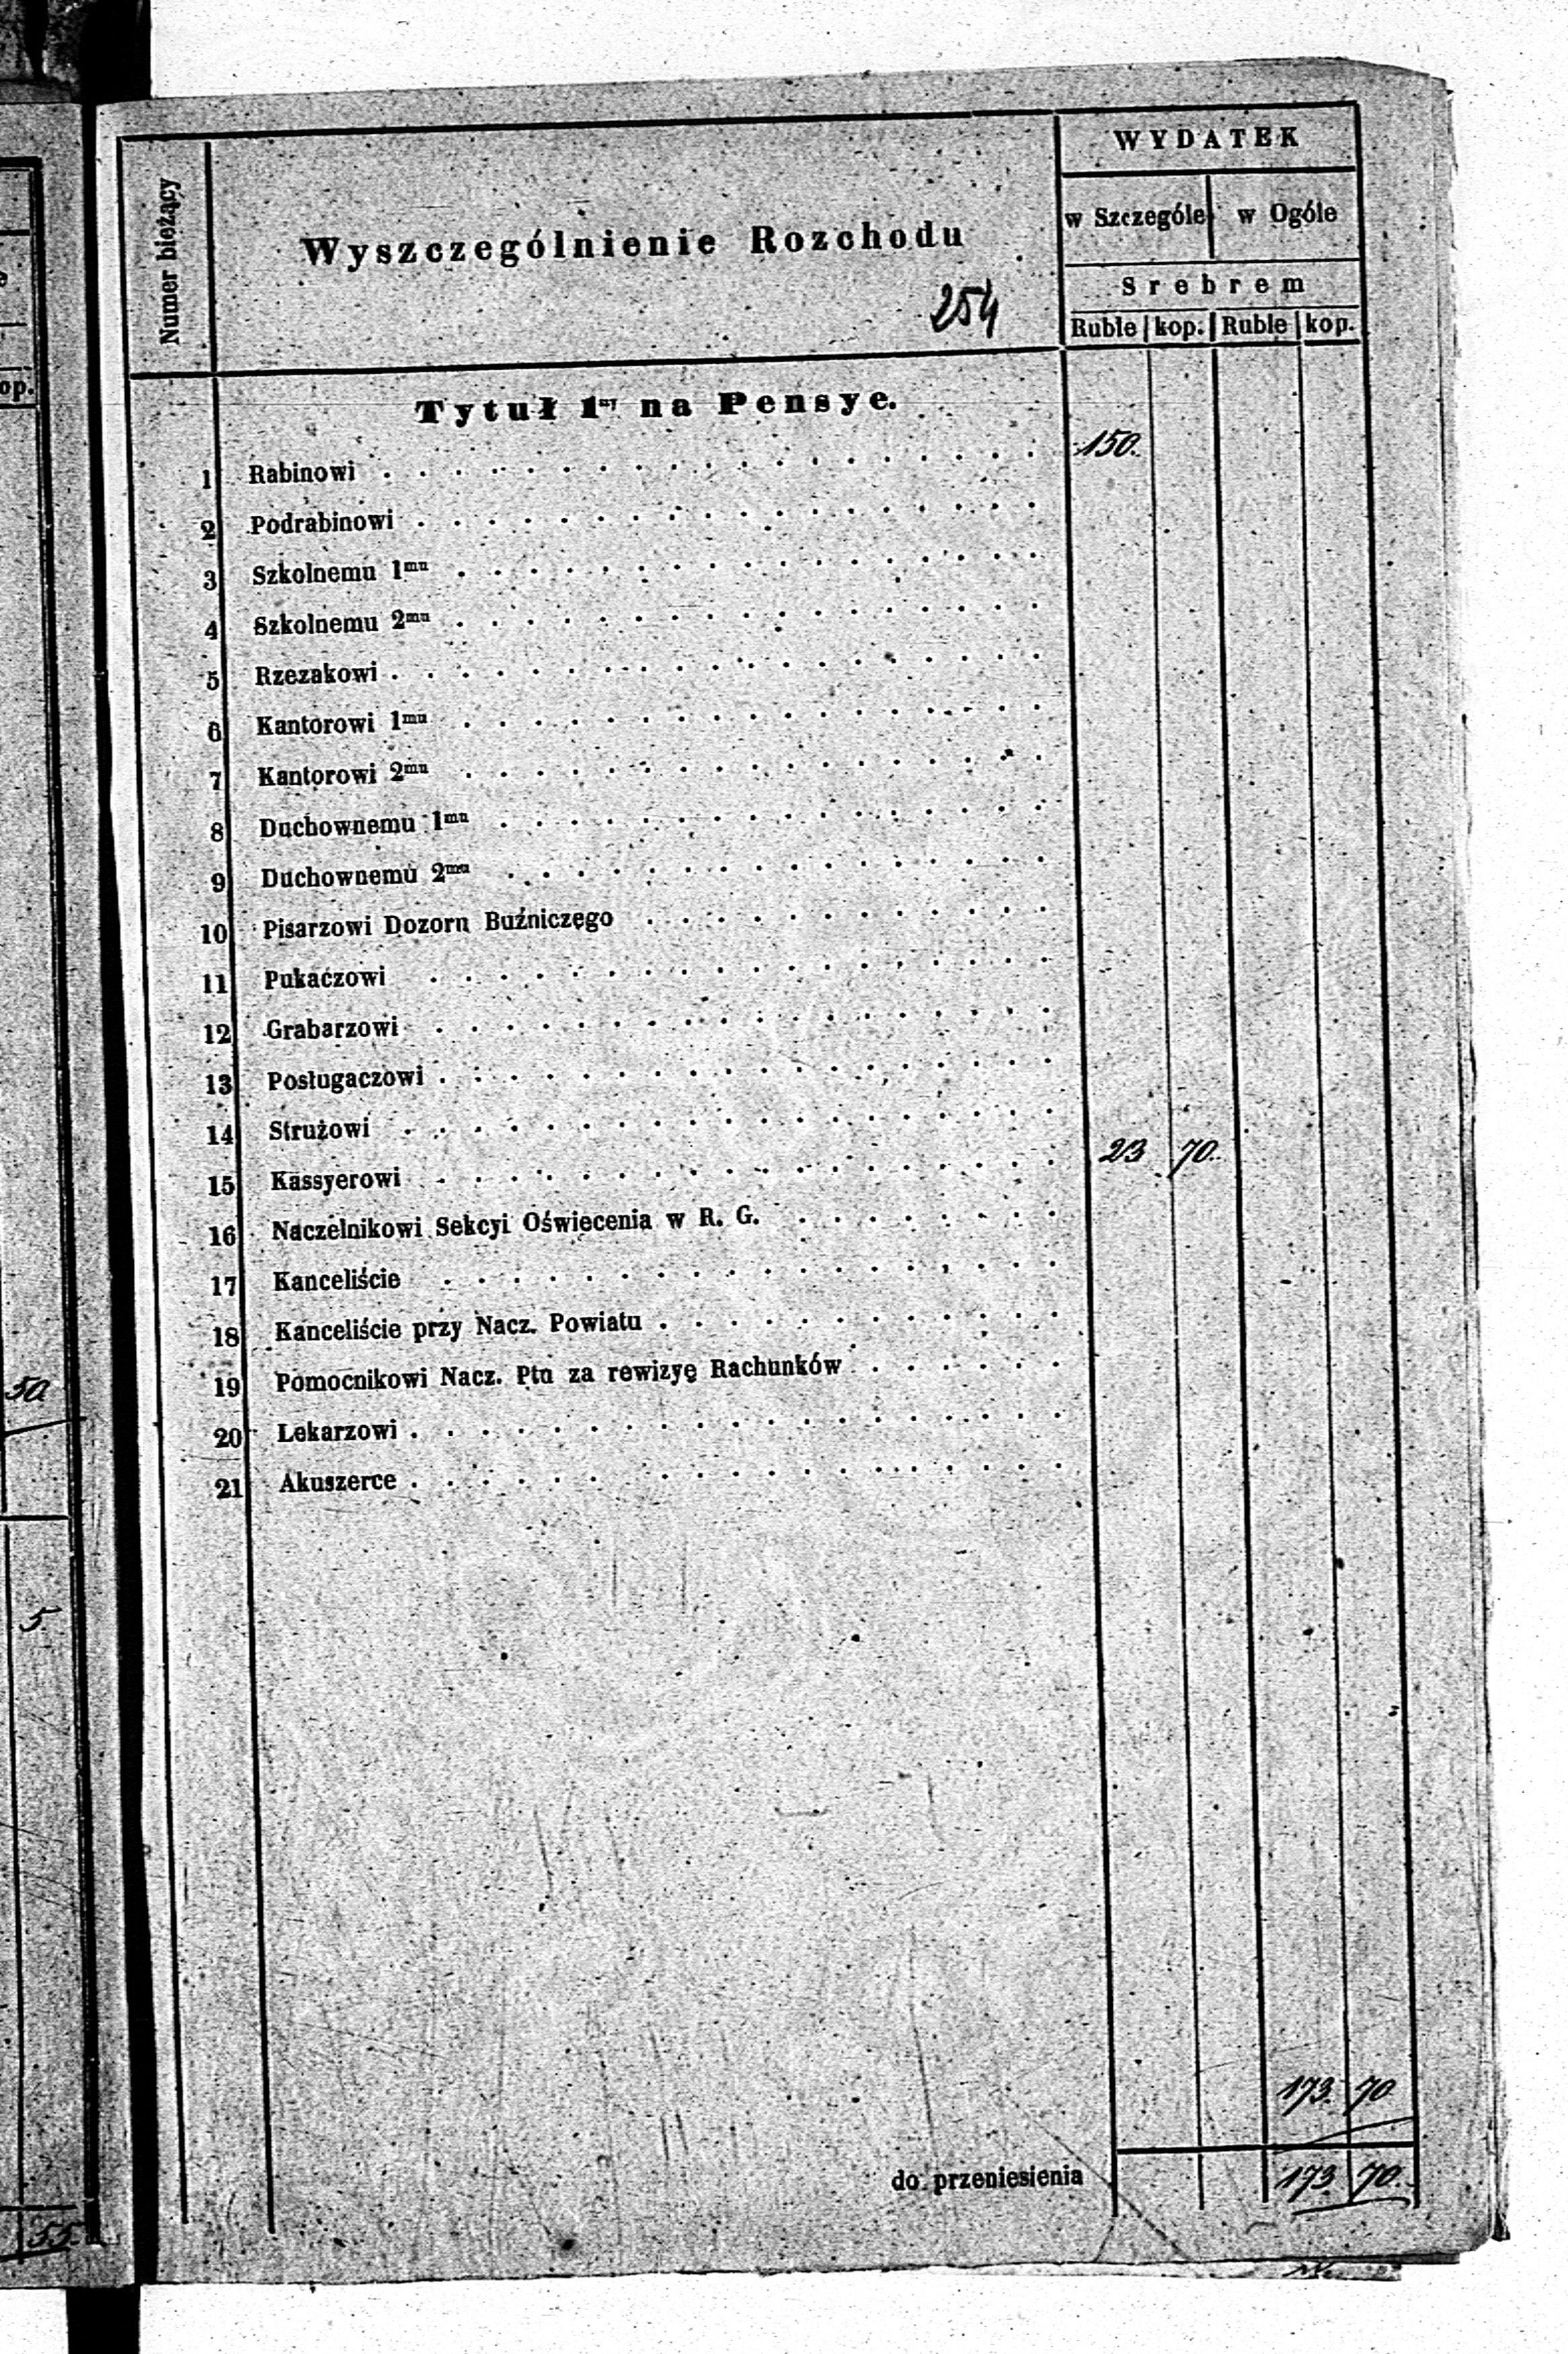 op.
50
5
55.
Numer bieżący
Wyszczególnienie Rozchodu
254
WYDATEK
w Szczególe w Ogóle
Srebrem
Ruble kop. Ruble kop.
Tytuł 1ny na Pensye.
1 Rabinowi 150.
2 Podrabinowi
3 Szkolnemu 1mu
4 Szkolnemu 2mu
5 Rzezakowi
6 Kantorowi 1mu
7 Kantorowi 2mu
8 Duchownemu 1mu
9 Duchownemu 2mu
10 Pisarzowi Dozoru Buźniczego
11 Pukaczowi
12 Grabarzowi
13 Posługaczowi
14 Strużowi
15 Kassyerowi 23 70.
16 Naczelnikowi Sekcyi Oświecenia w R. G.
17 Kanceliście
18 Kanceliście przy Nacz. Powiatu
19 Pomocnikowi Nacz. Ptu za rewizyę Rachunków
20 Lekarzowi
21 Akuszerce
173. 70
do przeniesienia 173 70.